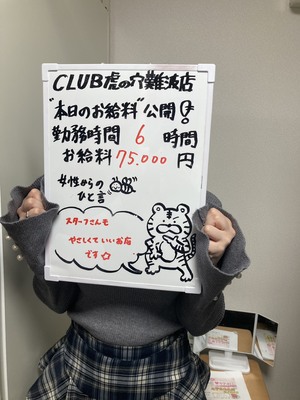 CLUB虎の穴難波店
"本日のお給料"公開!
勤務時間 6 時間
お給料 75.000 円
女性からの
ひと言
スタッフさんも
やさしくていいお店
です☆